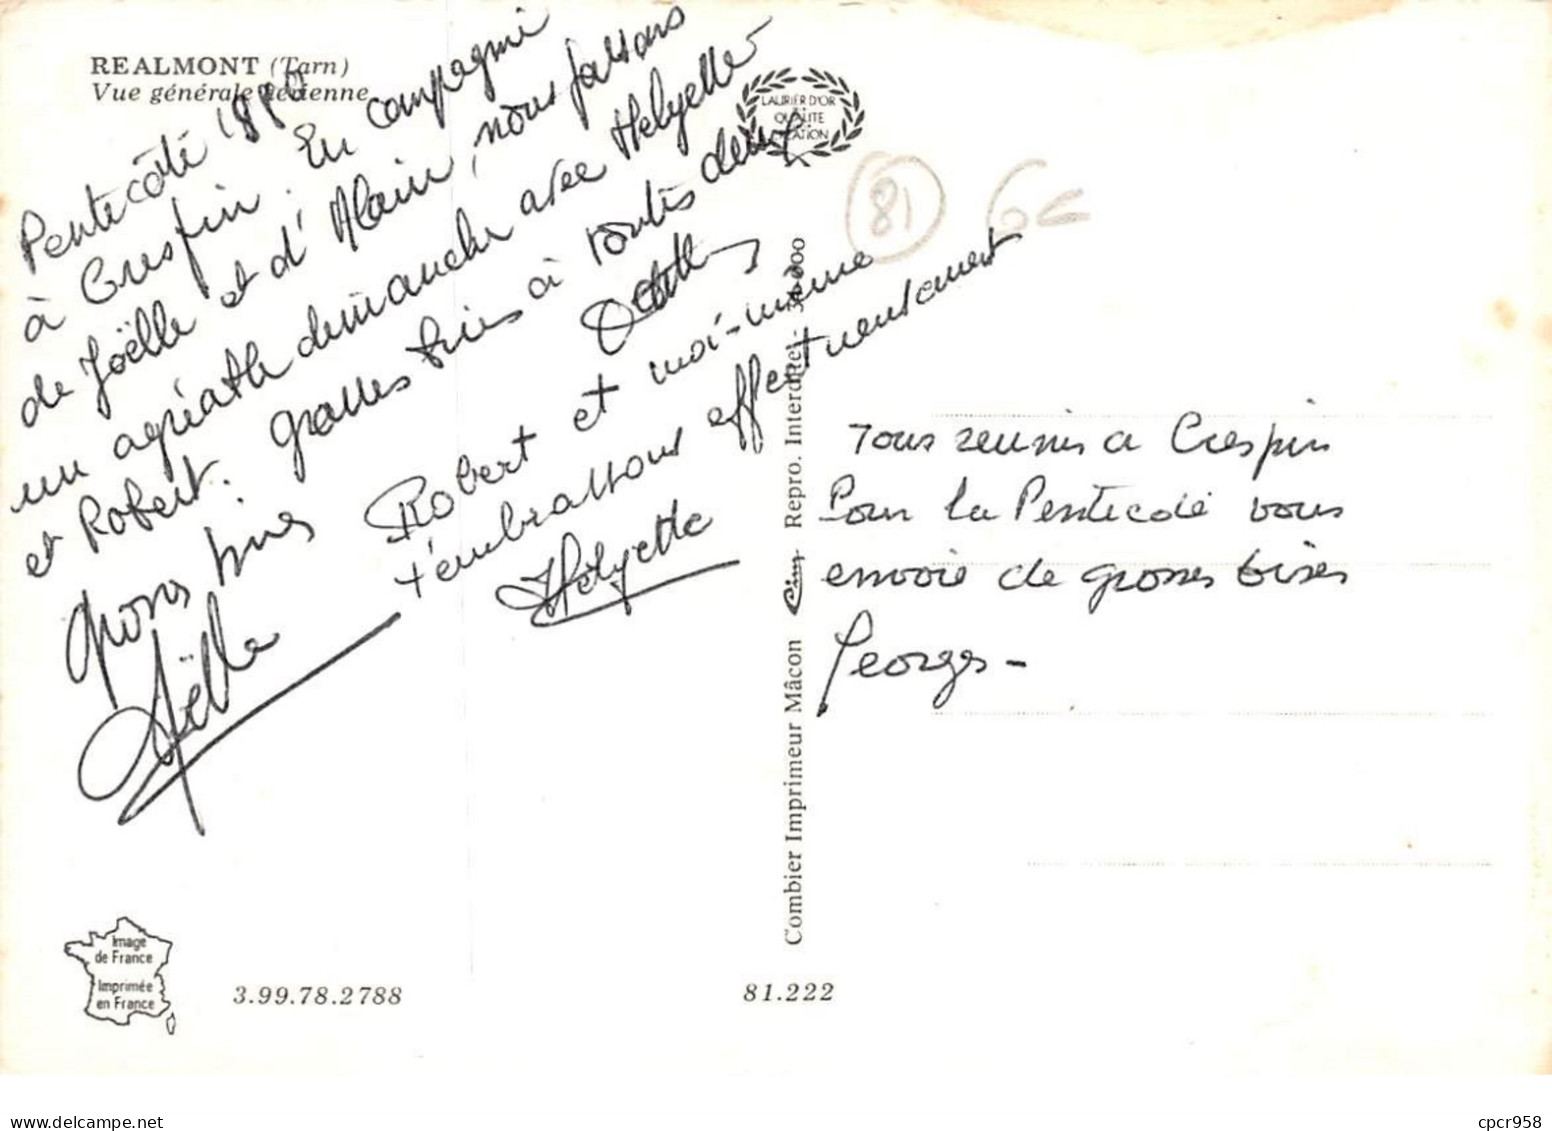 REALMONT (Tarn)
Vue générale aérienne
LAURIER D'OR
QUALITE
CREATION
Pentecôte 1980
à Crespin. En compagnie
de Joëlle et d'Alain, nous faisons
un agréable demanche avec Helyette
et Robert. grosses bises à toutes deux
Odette
grosses bises
Joëlle
Robert et moi-même
t'embrassons affectueusement
Hélyette
81
6€
Tous reunis a Crespin
Pour la Pentecote vous
envoie de grosses bises
Georges -
Combier Imprimeur Mâcon Cim Repro. Interdite
Image
de France
Imprimée
en France
3.99.78.2788
81.222
cpcr958